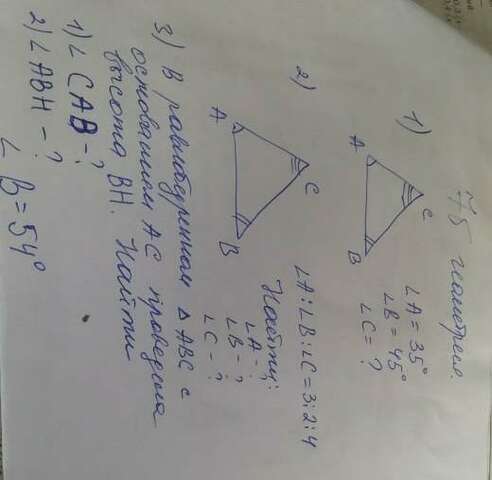 7б геометрия.
1)
A
C
B
∠A = 35°
∠B = 45°
∠C = ?
2)
A
C
B
∠A:∠B:∠C = 3:2:4
Найти:
∠A - ?
∠B - ?
∠C - ?
3) В равнобуренном △ABC с
основанием AC проведена
высота BH. Найти
1) ∠CAB - ?
2) ∠ABH - ?
∠B = 54°